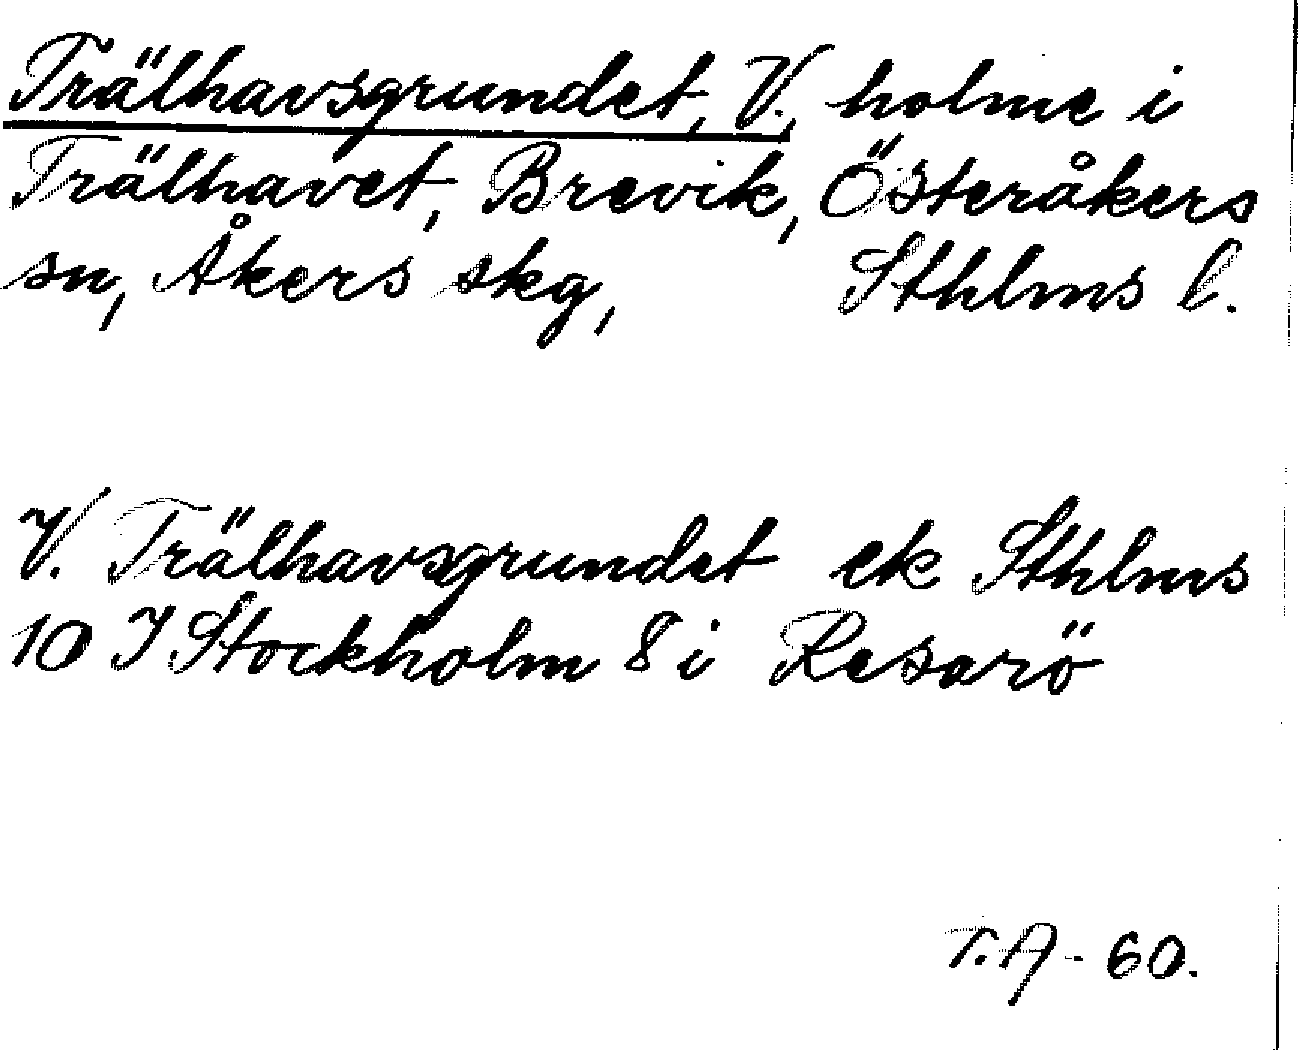 Trälhavsgrundet, V., holme i
Trälhavet, Brevik, Österåkers
sn, Åkers skg, Sthlms l.
V. Trälhavsgrundet ek Sthlms
10 I Stockholm 8 i Resarö
T.A - 60.